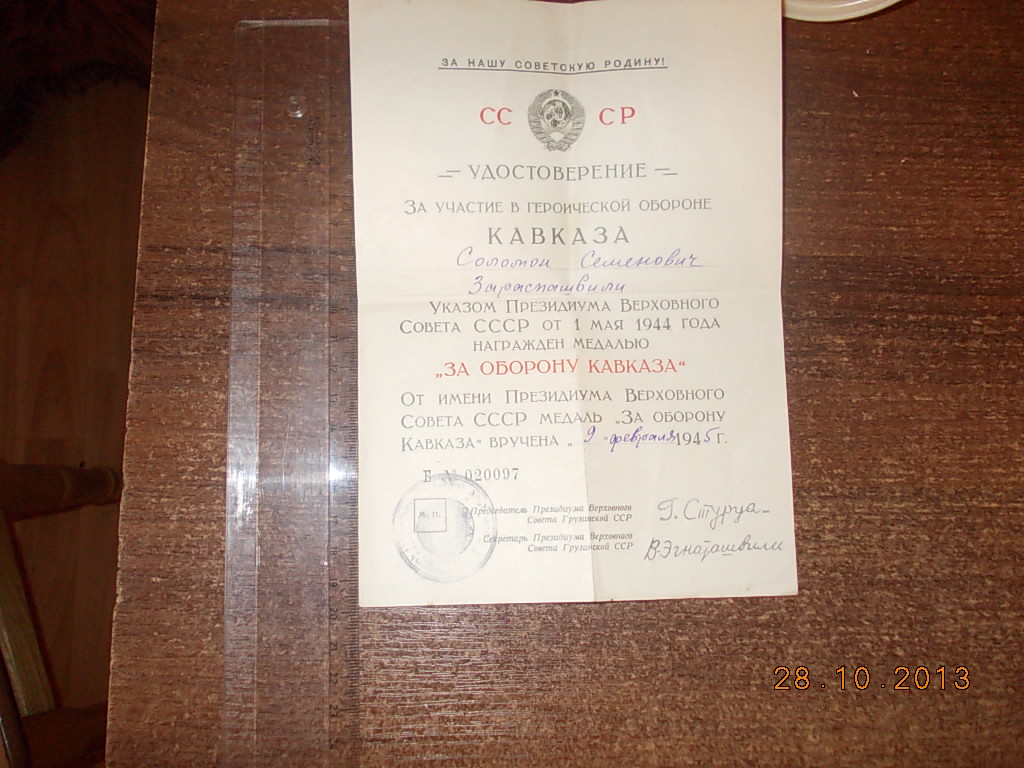 ЗА НАШУ СОВЕТСКУЮ РОДИНУ!
СС СР
УДОСТОВЕРЕНИЕ
ЗА УЧАСТИЕ В ГЕРОИЧЕСКОЙ ОБОРОНЕ
КАВКАЗА
Соломон Семенович
Зараспашвили
УКАЗОМ ПРЕЗИДИУМА ВЕРХОВНОГО
СОВЕТА СССР ОТ 1 МАЯ 1944 ГОДА
НАГРАЖДЕН МЕДАЛЬЮ
„ЗА ОБОРОНУ КАВКАЗА“
ОТ ИМЕНИ ПРЕЗИДИУМА ВЕРХОВНОГО
СОВЕТА СССР МЕДАЛЬ „ЗА ОБОРОНУ
КАВКАЗА“ ВРУЧЕНА „9“ февраля 1945 г.
Б № 020097
М. П.
Председатель Президиума Верховного
Совета Грузинской ССР
Г. Стуруа
Секретарь Президиума Верховного
Совета Грузинской ССР
В. Эгнаташвили
28.10.2013